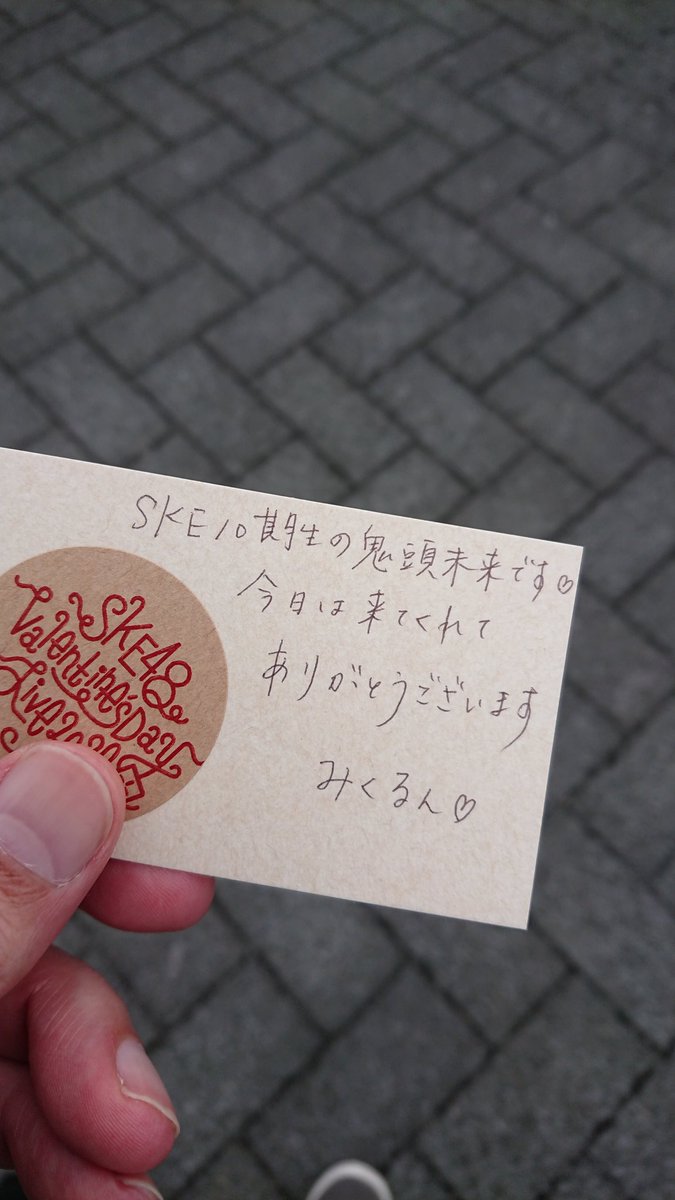 SKE48
Valentine's Day
Live2020
SKE10期生の鬼頭未来です♡
今日は来てくれて
ありがとうございます
みくるん♡